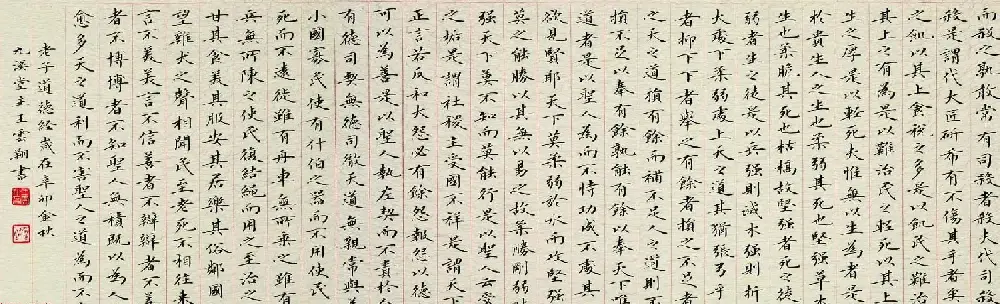 而殺之孰敢常有司殺者殺夫代司殺
殺是謂代大匠斫希有不傷其手者矣
之飢以其上食稅之多是以飢民之難治
其上之有為是以難治民之輕死以其
生之厚是以輕死夫惟無以生為者是
於貴生人之生也柔弱其死也堅強草
生也柔脆其死也枯槁故堅強者死之徒
弱者生之徒是以兵強則滅木強則折
大處下柔弱處上天之道其猶張弓乎
者抑下下者舉之有餘者損之不足者
之天之道損有餘而補不足人之道則不
損不足以奉有餘孰能有餘以奉天下唯
道者是以聖人為而不恃功成不處其
欲見賢耶天下莫柔弱於水而攻堅強
莫之能勝以其無以易之故柔勝剛弱
强天下莫不知而莫能行是以聖人云受
之垢是謂社稷主受國不祥是謂天下
正言若反和大怨必有餘怨報怨以德
可以為善是以聖人執左契而不責於
有德司契無德司徹天道無親常與善
小國寡民使有什伯之器而不用使民
死而不遠徙雖有舟車無所乘之雖有
兵無所陳之使民復結繩而用之至治之
甘其食美其服安其居樂其俗鄰國
望雞犬之聲相聞民至老死不相往來
言不美美言不信善者不辯辯者不善
者不博博者不知聖人無積既以為人
愈多天之道利而不害聖人之道為而不
老子道德經歲在辛卯金秋
九溪堂主王雲翔書